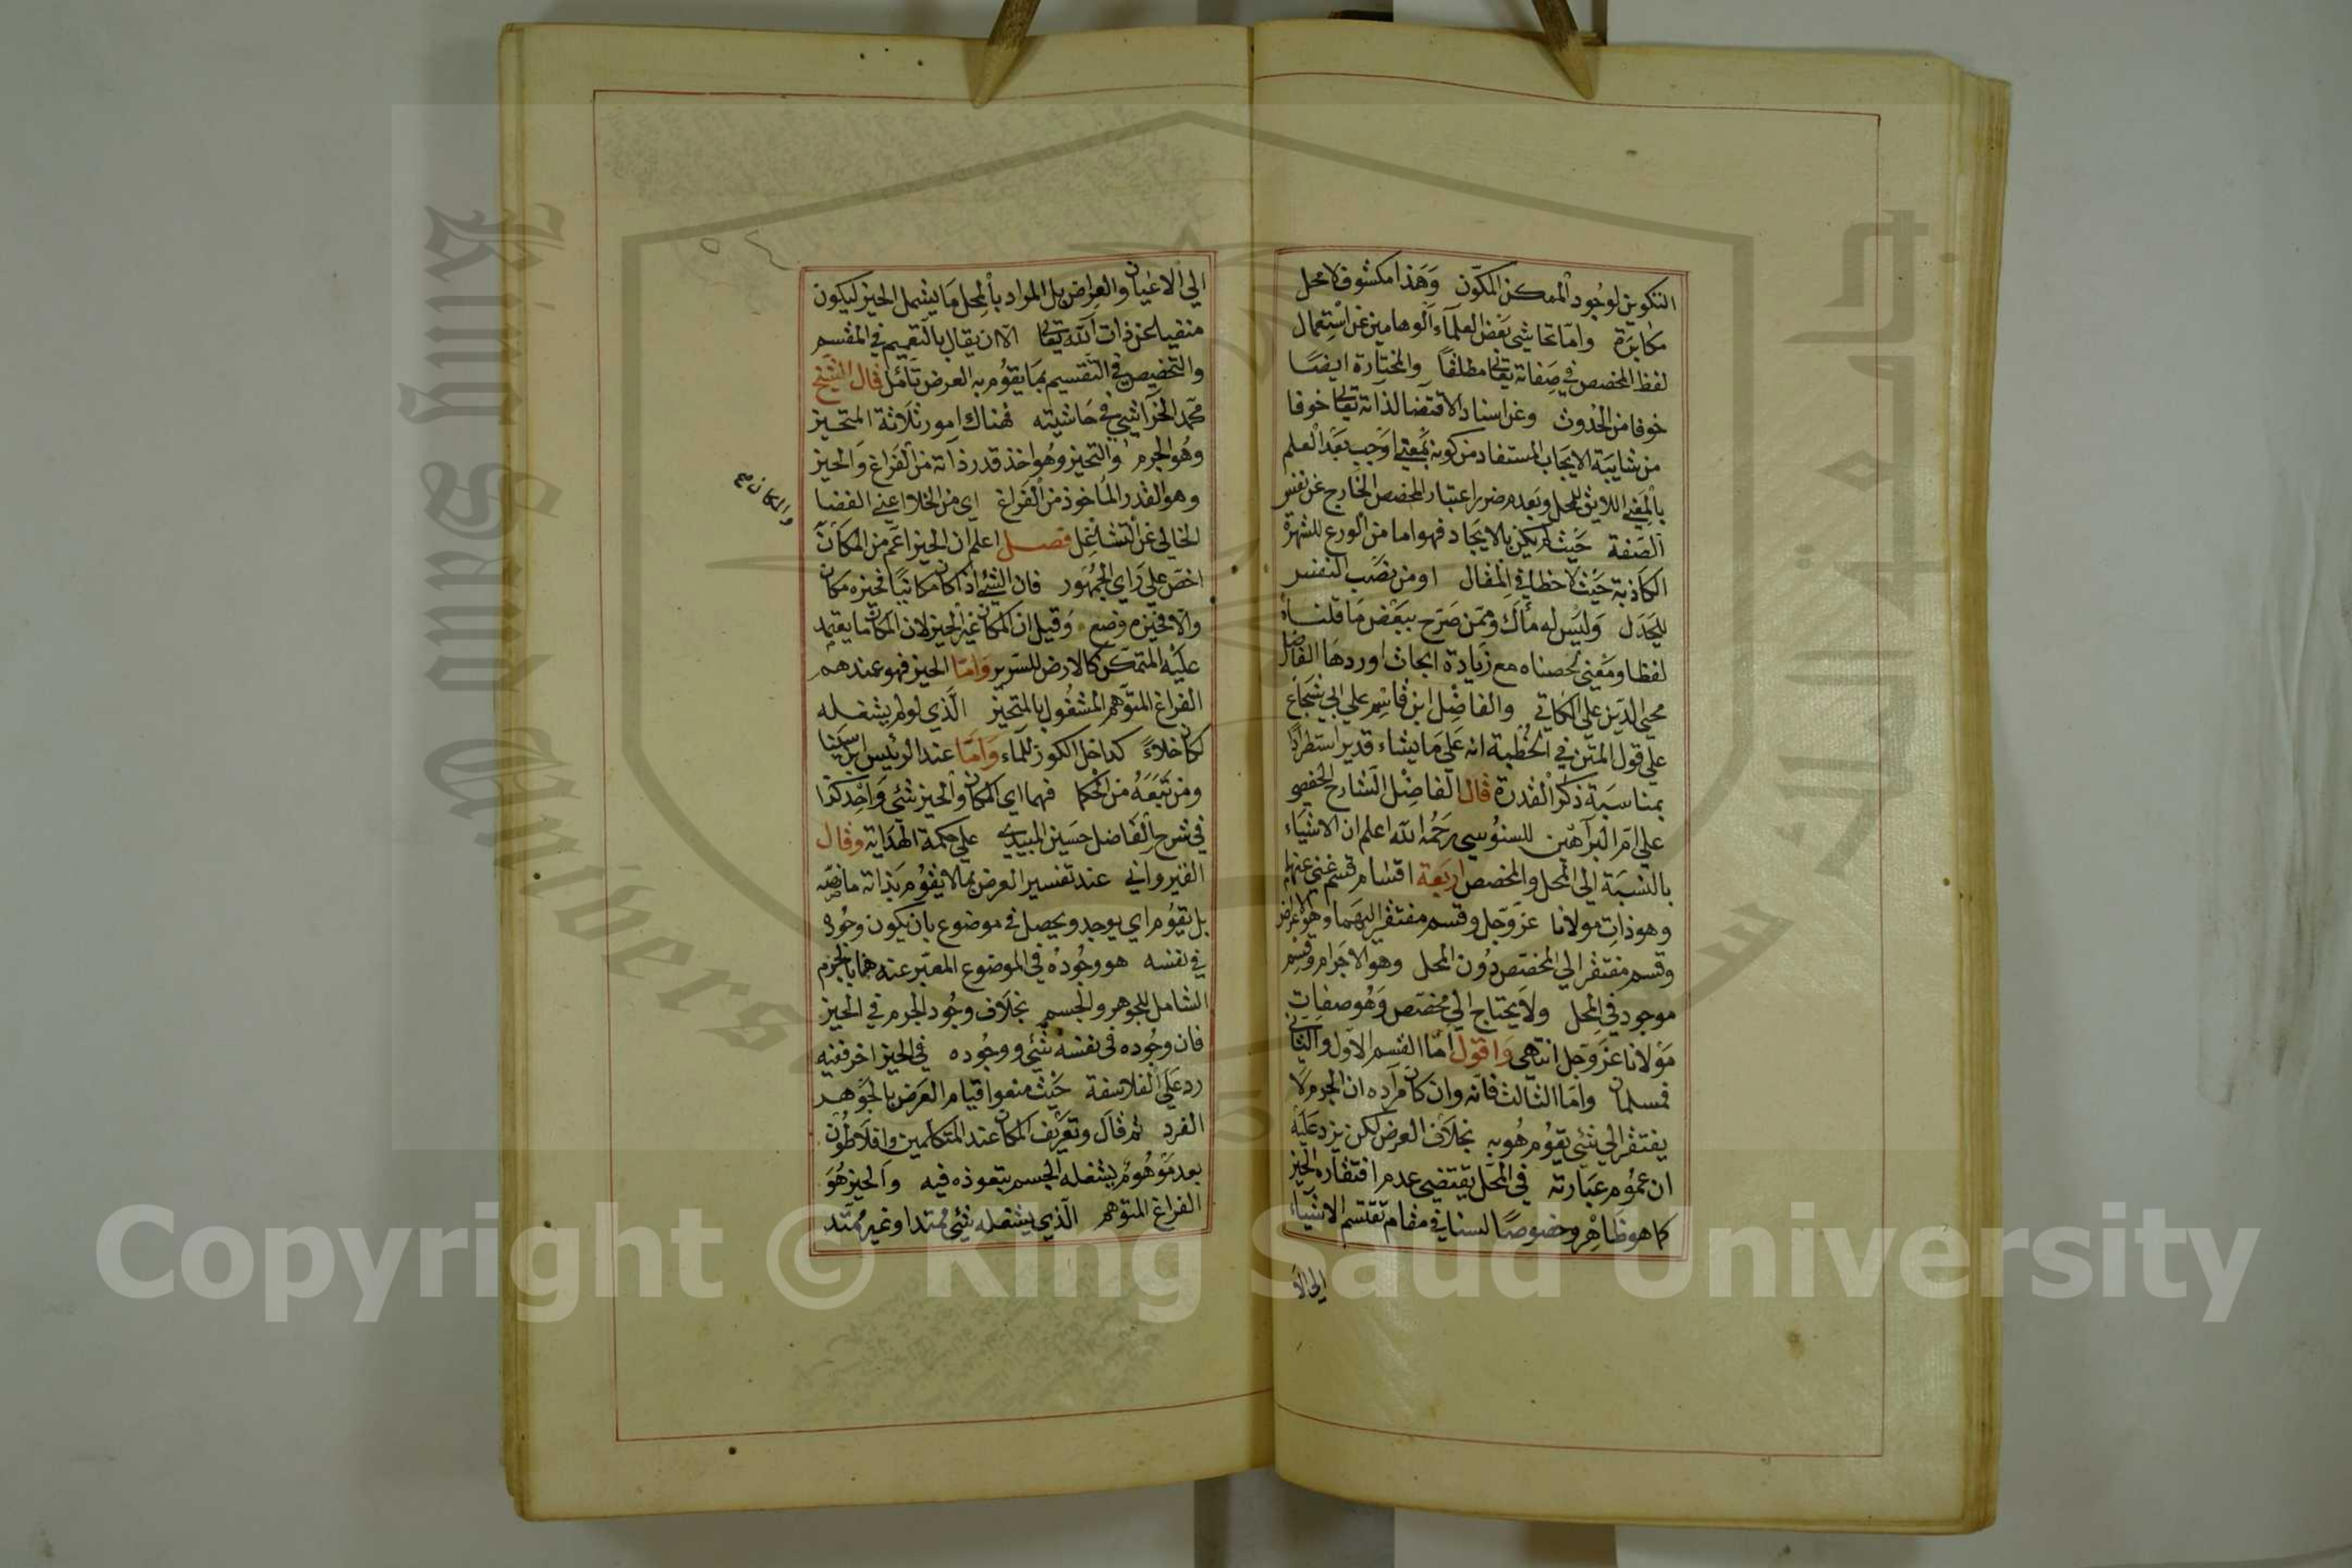 التكوين لوجود الممكن المكون وهذا مكشوف لا محل
مكابرة واما تحاشى بعض العلماء الوهامين عن استعمال
لفظ المخصص في صفاته تعالى مطلقا والمختارة ايضا
خوفا من الحدوث وعن اسناد الاقتضا لذاته تعالى خوفا
من شايبة الايجاب المستفاد من كونه بمعنى اوجب بعد العلم
بالمعنى اللايق للمحل وبعدم ضرر اعتبار المخصص الخارج عن نفس
الصفة حيث لم يكن بالايجاد فهو اما من الورع للشهرة
الكاذبة حيث لا خطا في المقال او من نصب النفس
للجدل وليس له مأك وممن صرح ببعض ما قلناه
لفظا ومعنى لخصناه مع زيادة ابحاث اوردها الفاضل
محيي الدين علي الكافي والفاضل ابن قاسم علي ابي شجاع
علي قول المتن في الخطبة انه علي ما يشاء قدير استطرادا
بمناسبة ذكر القدرة قال الفاضل الشارح الحفصي
علي ام البراهين للسنوسي رحمه الله اعلم ان الاشياء
بالنسبة الي المحل والمخصص اربعة اقسام قسم غني عنهما
وهو ذات مولانا عز وجل وقسم مفتقر اليهما وهو الاعراض
وقسم مفتقر الي المخصص دون المحل وهو الاجرام وقسم
موجود في المحل ولا يحتاج الي مخصص وهو صفات
مولانا عز وجل انتهى واقول اما القسم الاول والثاني
فمسلمان واما الثالث فانه وان كان مراده ان الجرم لا
يفتقر الي شئي يقوم هو به بخلاف العرض لكن يرد عليه
ان عموم عبارته في المحل يقتضي عدم افتقاره الحيز
كما هو ظاهر وخصوصا لسنا في مقام تقسيم الاشياء
الي الا
الي الاعيان والعراض بل المراد بالمحل ما يشمل الحيز ليكون
منفيا عن ذات الله تعالى الا ان يقال بالتعميم في المقسم
والتخصيص في التقسيم بما يقوم به العرض تأمل قال الشيخ
محمد الخراشي في حاشيته فهناك امور ثلاثة المتحيز
وهو الجرم والتحيز وهو اخذ قدر ذاته من الفراغ والحيز
وهو القدر الماخوذ من الفراغ اي من الخلا اعني الفضا
الخالي عن الشاغل فصل اعلم ان الحيز اعم من المكان
والمكان صح
اخص علي راي الجمهور فان الشئ اذا كان مكانيا فحيزه مكان
والا فحيزه وضع وقيل ان المكان غير الحيز لان المكان ما يعتمد
عليه المتمكن كالارض للسرير واما الحيز فهو عندهم
الفراغ المتوهم المشغول بالمتحيز الذي لو لم يشغله
لكان خلاء كداخل الكوز للماء واما عند الرئيس ابن سينا
ومن تبعه من الحكما فهما اي المكان والحيز شئي واحد كذا
في شرح الفاضل حسين المبيدي علي حكمة الهداية وقال
القيرواني عند تفسير العرض بما لا يقوم بذاته ما نصه
بل يقوم اي يوجد ويحصل في موضوع بان يكون وجوده
في نفسه هو وجوده في الموضوع المعبر عنه هنا بالجرم
الشامل للجوهر والجسم بخلاف وجود الجرم في الحيز
فان وجوده في نفسه شئي ووجوده في الحيز اخر ففيه
رد علي الفلاسفة حيث منعوا قيام العرض بالجوهر
الفرد ثم قال وتعريف المكان عند المتكلمين وافلاطون
بعد موهوم يشغله الجسم بنفوذه فيه والحيز هو
الفراغ المتوهم الذي يشغله شئي ممتد او غير ممتد
Copyright © King Saud University
King Saud University